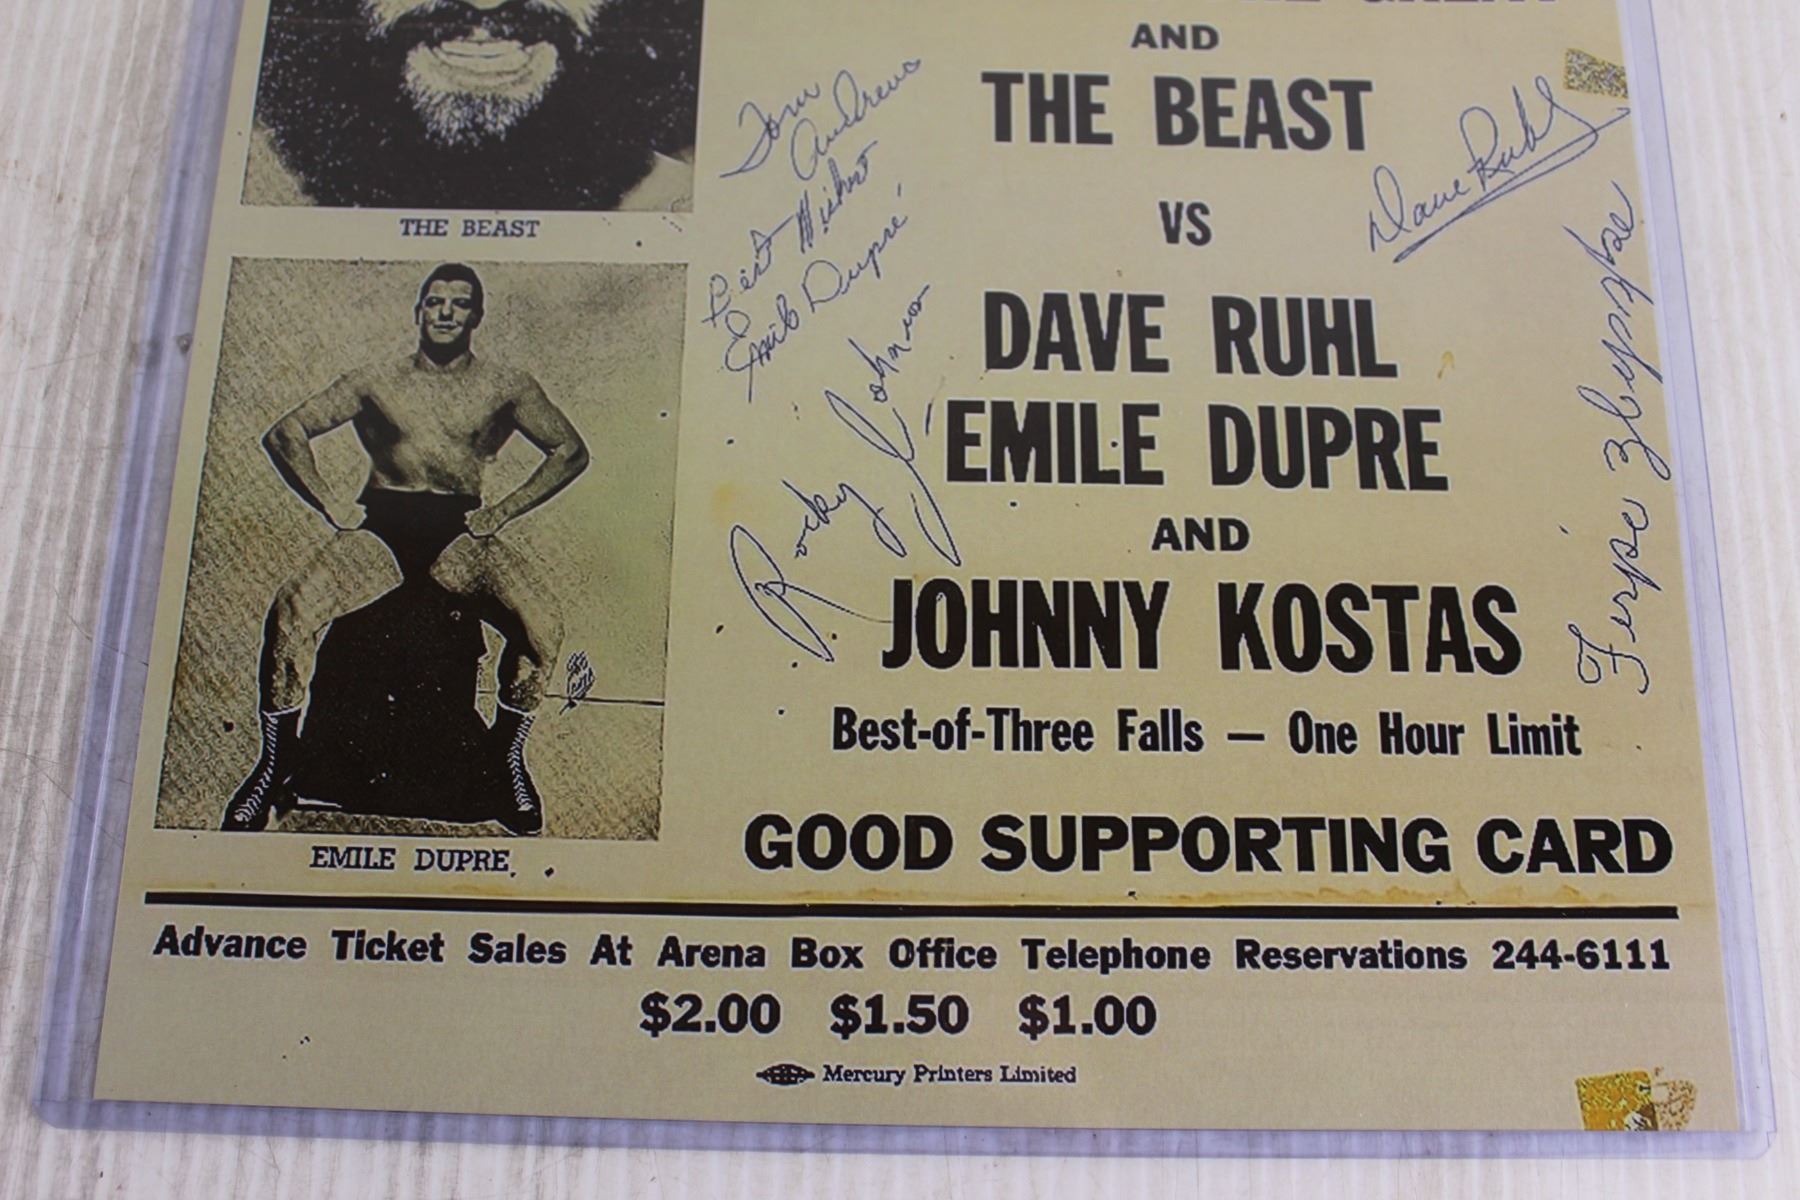 THE GREAT
AND
THE BEAST
VS
DAVE RUHL
EMILE DUPRE
AND
JOHNNY KOSTAS
Best-of-Three Falls — One Hour Limit
GOOD SUPPORTING CARD
THE BEAST
EMILE DUPRE
Tom
Andrews
Best Wishes
Emile Dupré
Rocky Johnson
Dave Ruhl
Advance Ticket Sales At Arena Box Office Telephone Reservations 244-6111
$2.00 $1.50 $1.00
Mercury Printers Limited